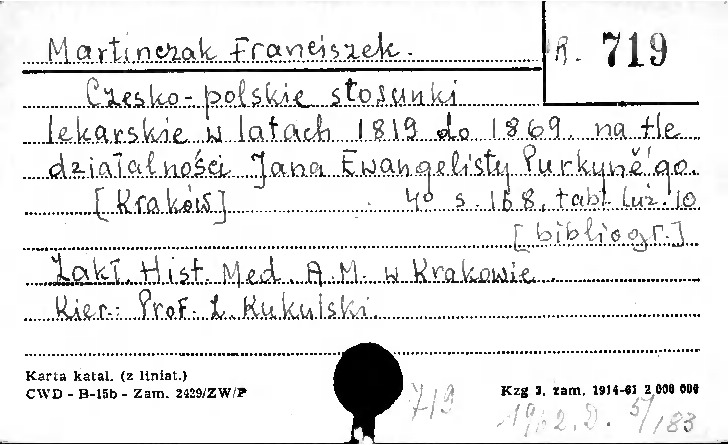 Martinczak Franciszek.
R. 719
Czesko-polskie stosunki
lekarskie w latach 1819 do 1869. na tle
działalności Jana Ewangelisty Purkyně'go.
[Kraków] 4° s. 168, tabl. luź. 10
[bibliogr.]
Zakł. Hist. Med. A.M. w Krakowie.
Kier.: Prof. L. Kukulski.
Karta katal. (z liniat.)
CWD - B-15b - Zam. 2429/ZW/P
Kzg 3, zam. 1914-61 2 000 000
719
1962.D. 57/83